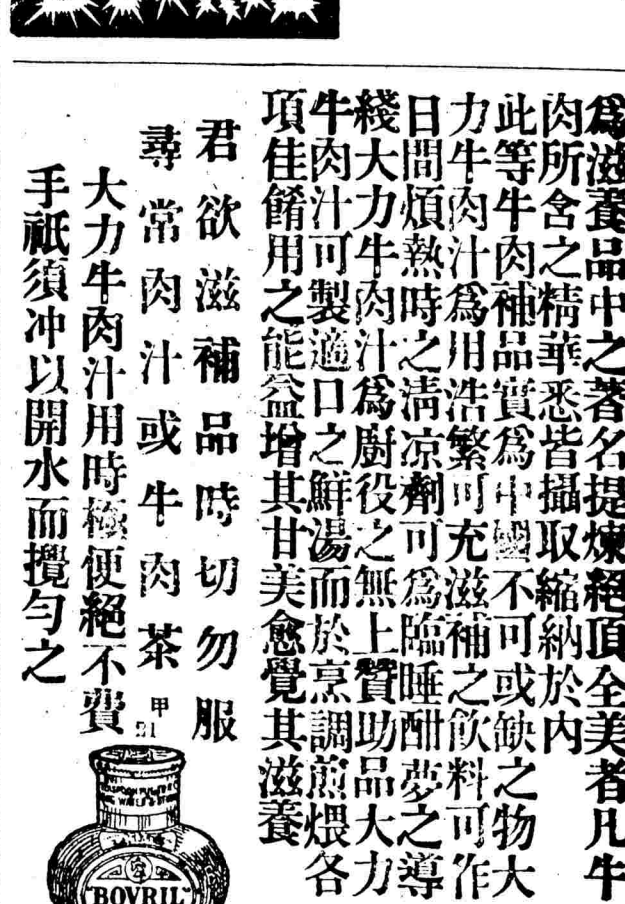 爲滋養品中之著名提煉絕頂全美者凡牛
肉所含之精華悉皆攝取縮納於內
此等牛肉補品實爲中國不可或缺之物大
力牛肉汁爲用浩繁可充滋補之飲料可作
日間煩熱時之清凉劑可爲臨睡酣夢之導
綫大力牛肉汁爲廚役之無上贊助品大力
牛肉汁可製適口之鮮湯而於烹調煎煨各
項佳餚用之能益增其甘美愈覺其滋養
君欲滋補品時切勿服
尋常肉汁或牛肉茶
甲
大力牛肉汁用時極便絕不費
手祇須冲以開水而攪勻之
BOVRIL